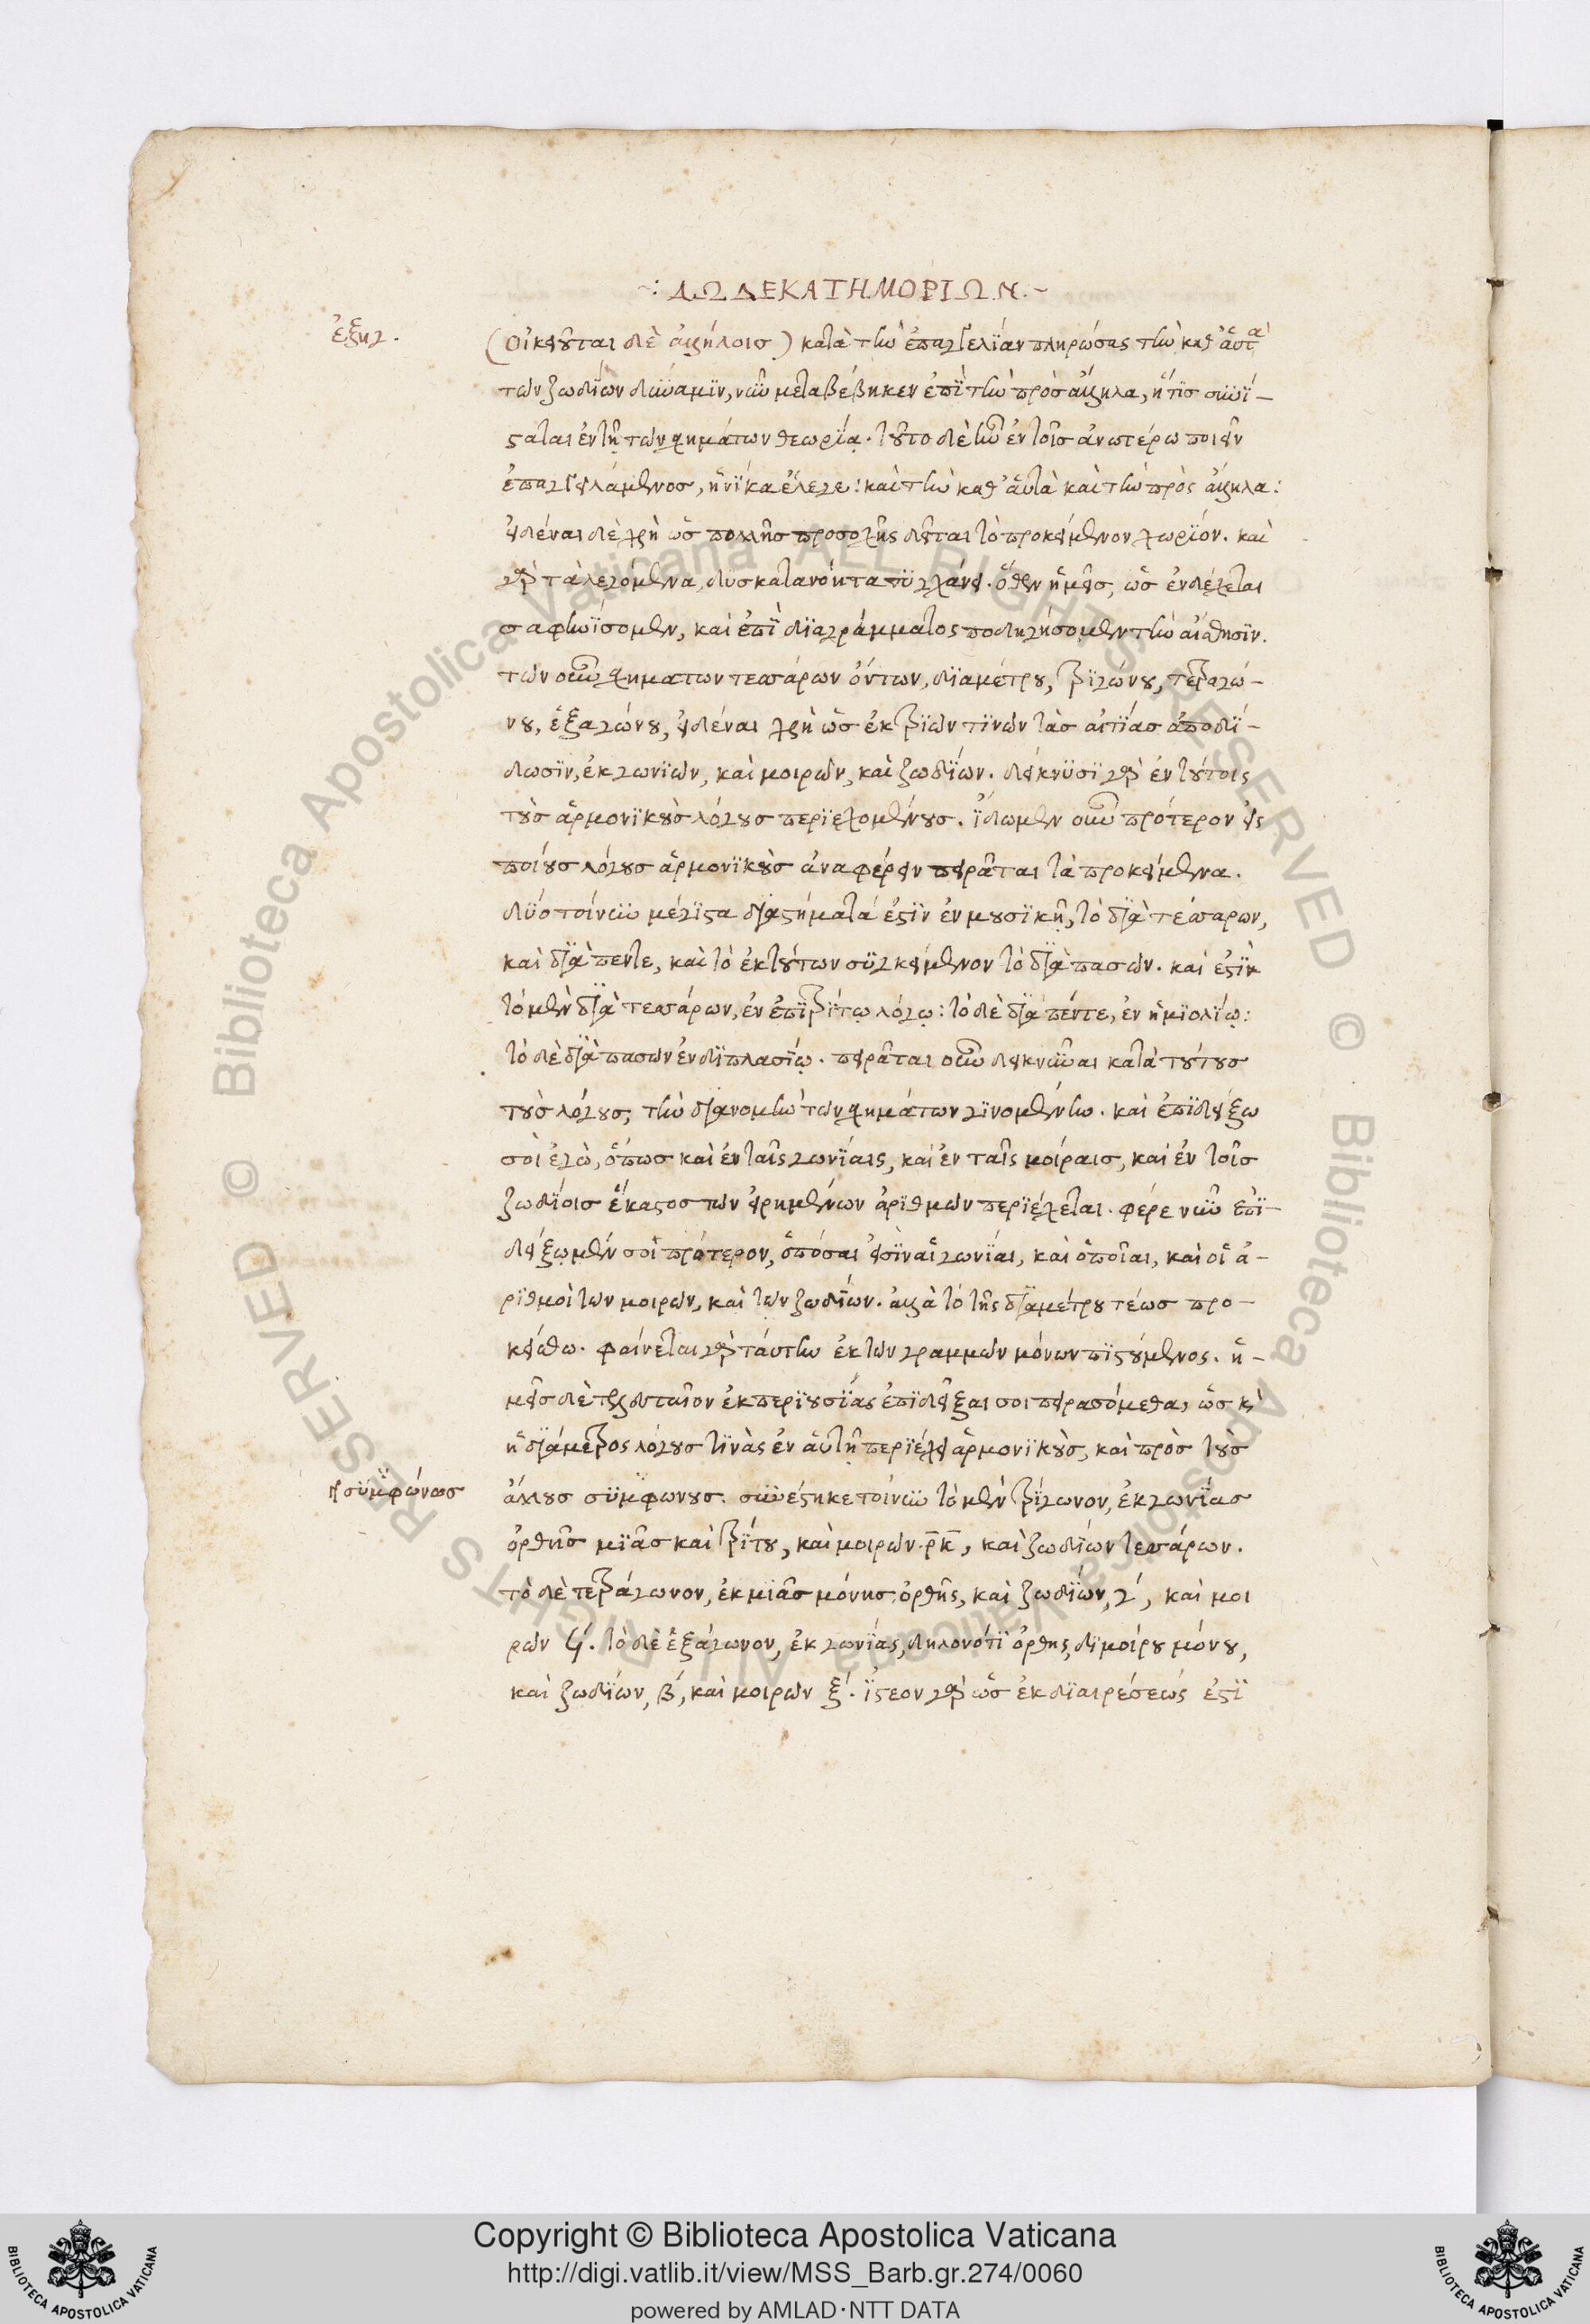 ~: ΔΩΔΕΚΑΤΗΜΟΡΙΩΝ. ~
ἐξηγ.
(Οἰκειοῦται δὲ ἀλλήλοις) κατὰ τὴν ἐπαγγελίαν πληρώσας τὴν καθ' αὑτὰ
τῶν ζωδίων δύναμιν, νῦν μεταβέβηκεν ἐπὶ τὴν πρὸς ἄλληλα, ἥτις συνί-
σταται ἐν τῇ τῶν σχημάτων θεωρίᾳ. τοῦτο δὲ ἦν ἐν τοῖς ἀνωτέρω ποιεῖν
ἐπαγγειλάμενος, ἡνίκα ἔλεγε: καὶ τὴν καθ' αὑτὰ καὶ τὴν πρὸς ἄλληλα:
εἰδέναι δὲ χρὴ ὡς πολλῆς προσοχῆς δεῖται τὸ προκείμενον χωρίον. καὶ
γὰρ τὰ λεγόμενα, δυσκατανόητα τυγχάνει. ὅθεν ἡμεῖς, ὡς ἐνδέχεται
σαφηνίσομεν, καὶ ἐπὶ διαγράμματος ποδηγήσομεν τὴν αἴσθησιν.
τῶν οὖν σχηματων τεσσάρων ὄντων, διαμέτρου, τριγώνου, τετραγώ-
νου, ἑξαγώνου, εἰδέναι χρὴ ὡς ἐκ τριῶν τινῶν τὰς αἰτίας ἀποδί-
δωσιν, ἐκ γωνιῶν, καὶ μοιρῶν, καὶ ζωδίων. δείκνυσι γὰρ ἐν τούτοις
τοὺς ἁρμονικοὺς λόγους περιεχομένους. ἴδωμεν οὖν πρότερον εἰς
ποίους λόγους ἁρμονικοὺς ἀναφέρειν πειρᾶται τὰ προκείμενα.
δύο τοίνυν μέγιστα διαστήματά ἐστιν ἐν μουσικῇ, τὸ διὰ τεσσάρων,
καὶ διὰ πέντε, καὶ τὸ ἐκ τούτων συγκείμενον τὸ διὰ πασῶν. καὶ ἔστιν
τὸ μὲν διὰ τεσσάρων, ἐν ἐπιτρίτῳ λόγῳ: τὸ δὲ διὰ πέντε, ἐν ἡμιολίῳ:
τὸ δὲ διὰ πασῶν ἐν διπλασίῳ. πειρᾶται οὖν δεικνῦναι κατὰ τούτους
τοὺς λόγους, τὴν διανομὴν τῶν σχημάτων γινομένην. καὶ ἐπιδείξω
σοὶ ἐγὼ, ὅπως καὶ ἐν ταῖς γωνίαις, καὶ ἐν ταῖς μοίραις, καὶ ἐν τοῖς
ζωδίοις ἕκαστος τῶν εἰρημένων ἀριθμῶν περιέχεται. φέρε νῦν ἐπι-
δείξωμέν σοι πρότερον, ὁπόσαι εἰσὶν αἱ γωνίαι, καὶ ὁποῖαι, καὶ οἱ ἀ-
ριθμοὶ τῶν μοιρῶν, καὶ τῶν ζωδίων. ἀλλὰ τὸ τῆς διαμέτρου τέως προ-
κείσθω. φαίνεται γὰρ ταύτην ἐκ τῶν γραμμῶν μόνων πιστούμενος. ἡ-
μεῖς δὲ ἐκ περιουσίας ἐπιδεῖξαι σοι πειρασόμεθα, ὡς καὶ
ἡ διάμετρος λόγους τινὰς ἐν αὑτῇ περιέχει ἁρμονικοὺς, καὶ πρὸς τοὺς
ἢ συμφώνως
ἄλλους συμφωνους. συνέστηκε τοίνυν τὸ μὲν τρίγωνον, ἐκ γωνίας
ὀρθῆς μιᾶς καὶ τρίτου, καὶ μοιρῶν ρ̅κ̅, καὶ ζωδίων τεσσάρων.
τὸ δὲ τετράγωνον, ἐκ μιᾶς μόνης ὀρθῆς, καὶ ζωδίων, γ´, καὶ μοι
ρῶν ϟ´. τὸ δὲ ἑξάγωνον, ἐκ γωνίας, δηλονότι ὀρθης, διμοίρου μόνου,
καὶ ζωδίων, β´, καὶ μοιρῶν ξ´. ἰστέον γὰρ ὡς ἐκ διαιρέσεώς ἐστι
Copyright © Biblioteca Apostolica Vaticana
http://digi.vatlib.it/view/MSS_Barb.gr.274/0060
powered by AMLAD·NTT DATA
BIBLIOTECA APOSTOLICA VATICANA
BIBLIOTECA APOSTOLICA VATICANA
© Biblioteca Apostolica Vaticana ALL RIGHTS RESERVED © Biblioteca Apostolica Vaticana ALL RIGHTS RESERVED